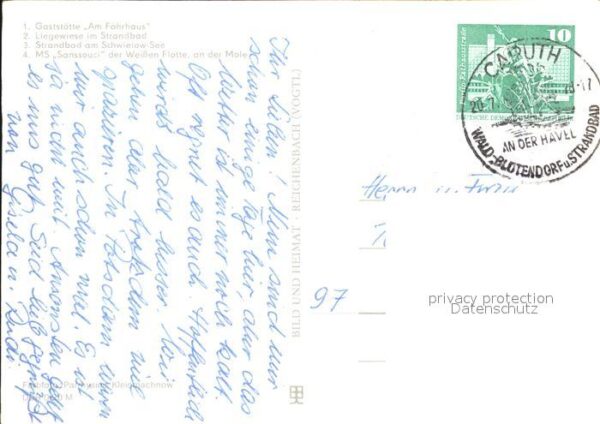 1. Gaststätte „Am Fährhaus"
2. Liegewiese im Strandbad
3. Strandbad am Schwielow-See
4. MS „Sanssouci" der Weißen Flotte, an der Mole
Ihr Lieben! Nun sind wir
schon einige Tage hier aber das
Wetter ist immer noch kalt.
Oft regnet es auch. Hoffentlich
wird's bald besser. Wir
gehen aber trotzdem viel
spazieren. In Potsdam waren
wir auch schon mal. Es ist
ja nicht weit. Ansonsten geht
es uns gut. Seid lieb gegrüßt
von
Gisela u. Rudi
BILD UND HEIMAT · REICHENBACH (VOGTL)
10
CAPUTH
AN DER HAVEL
WALD-BLÜTENDORF u. STRANDBAD
Herrn u. Frau
97
privacy protection
Datenschutz